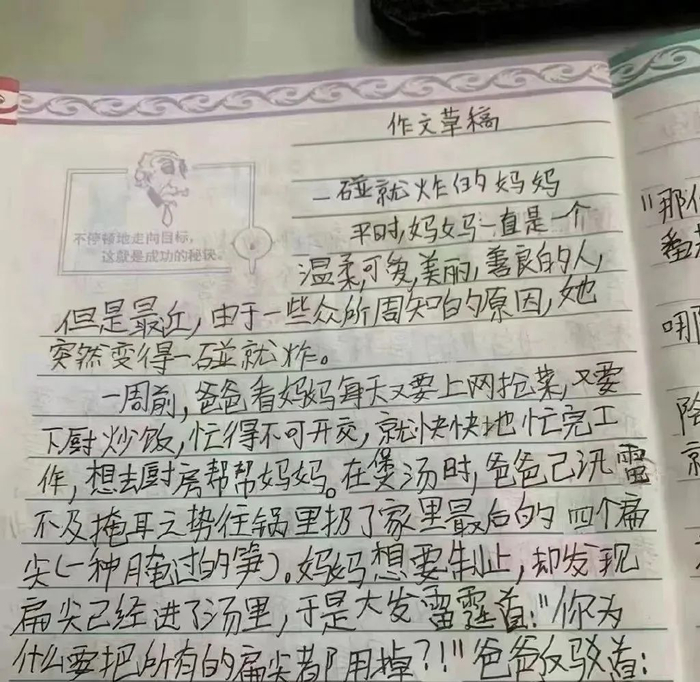 作文草稿
不停顿地走向目标，
这就是成功的秘诀。
一碰就炸的妈妈
平时,妈妈一直是一个
温柔,可爱,美丽,善良的人,
但是最近,由于一些众所周知的原因,她
突然变得一碰就炸。
一周前,爸爸看妈妈每天又要上网抢菜,又要
下厨炒饭,忙得不可开交,就快快地忙完工
作,想去厨房帮帮妈妈。在煲汤时,爸爸已汛雷
不及掩耳之势往锅里扔了家里最后的四个扁
尖(一种腌过的笋)。妈妈想要制止,却发现
扁尖已经进了汤里,于是大发雷霆道:"你为
什么要把所有的扁尖都用掉?!"爸爸反驳道:
"那
番
哪